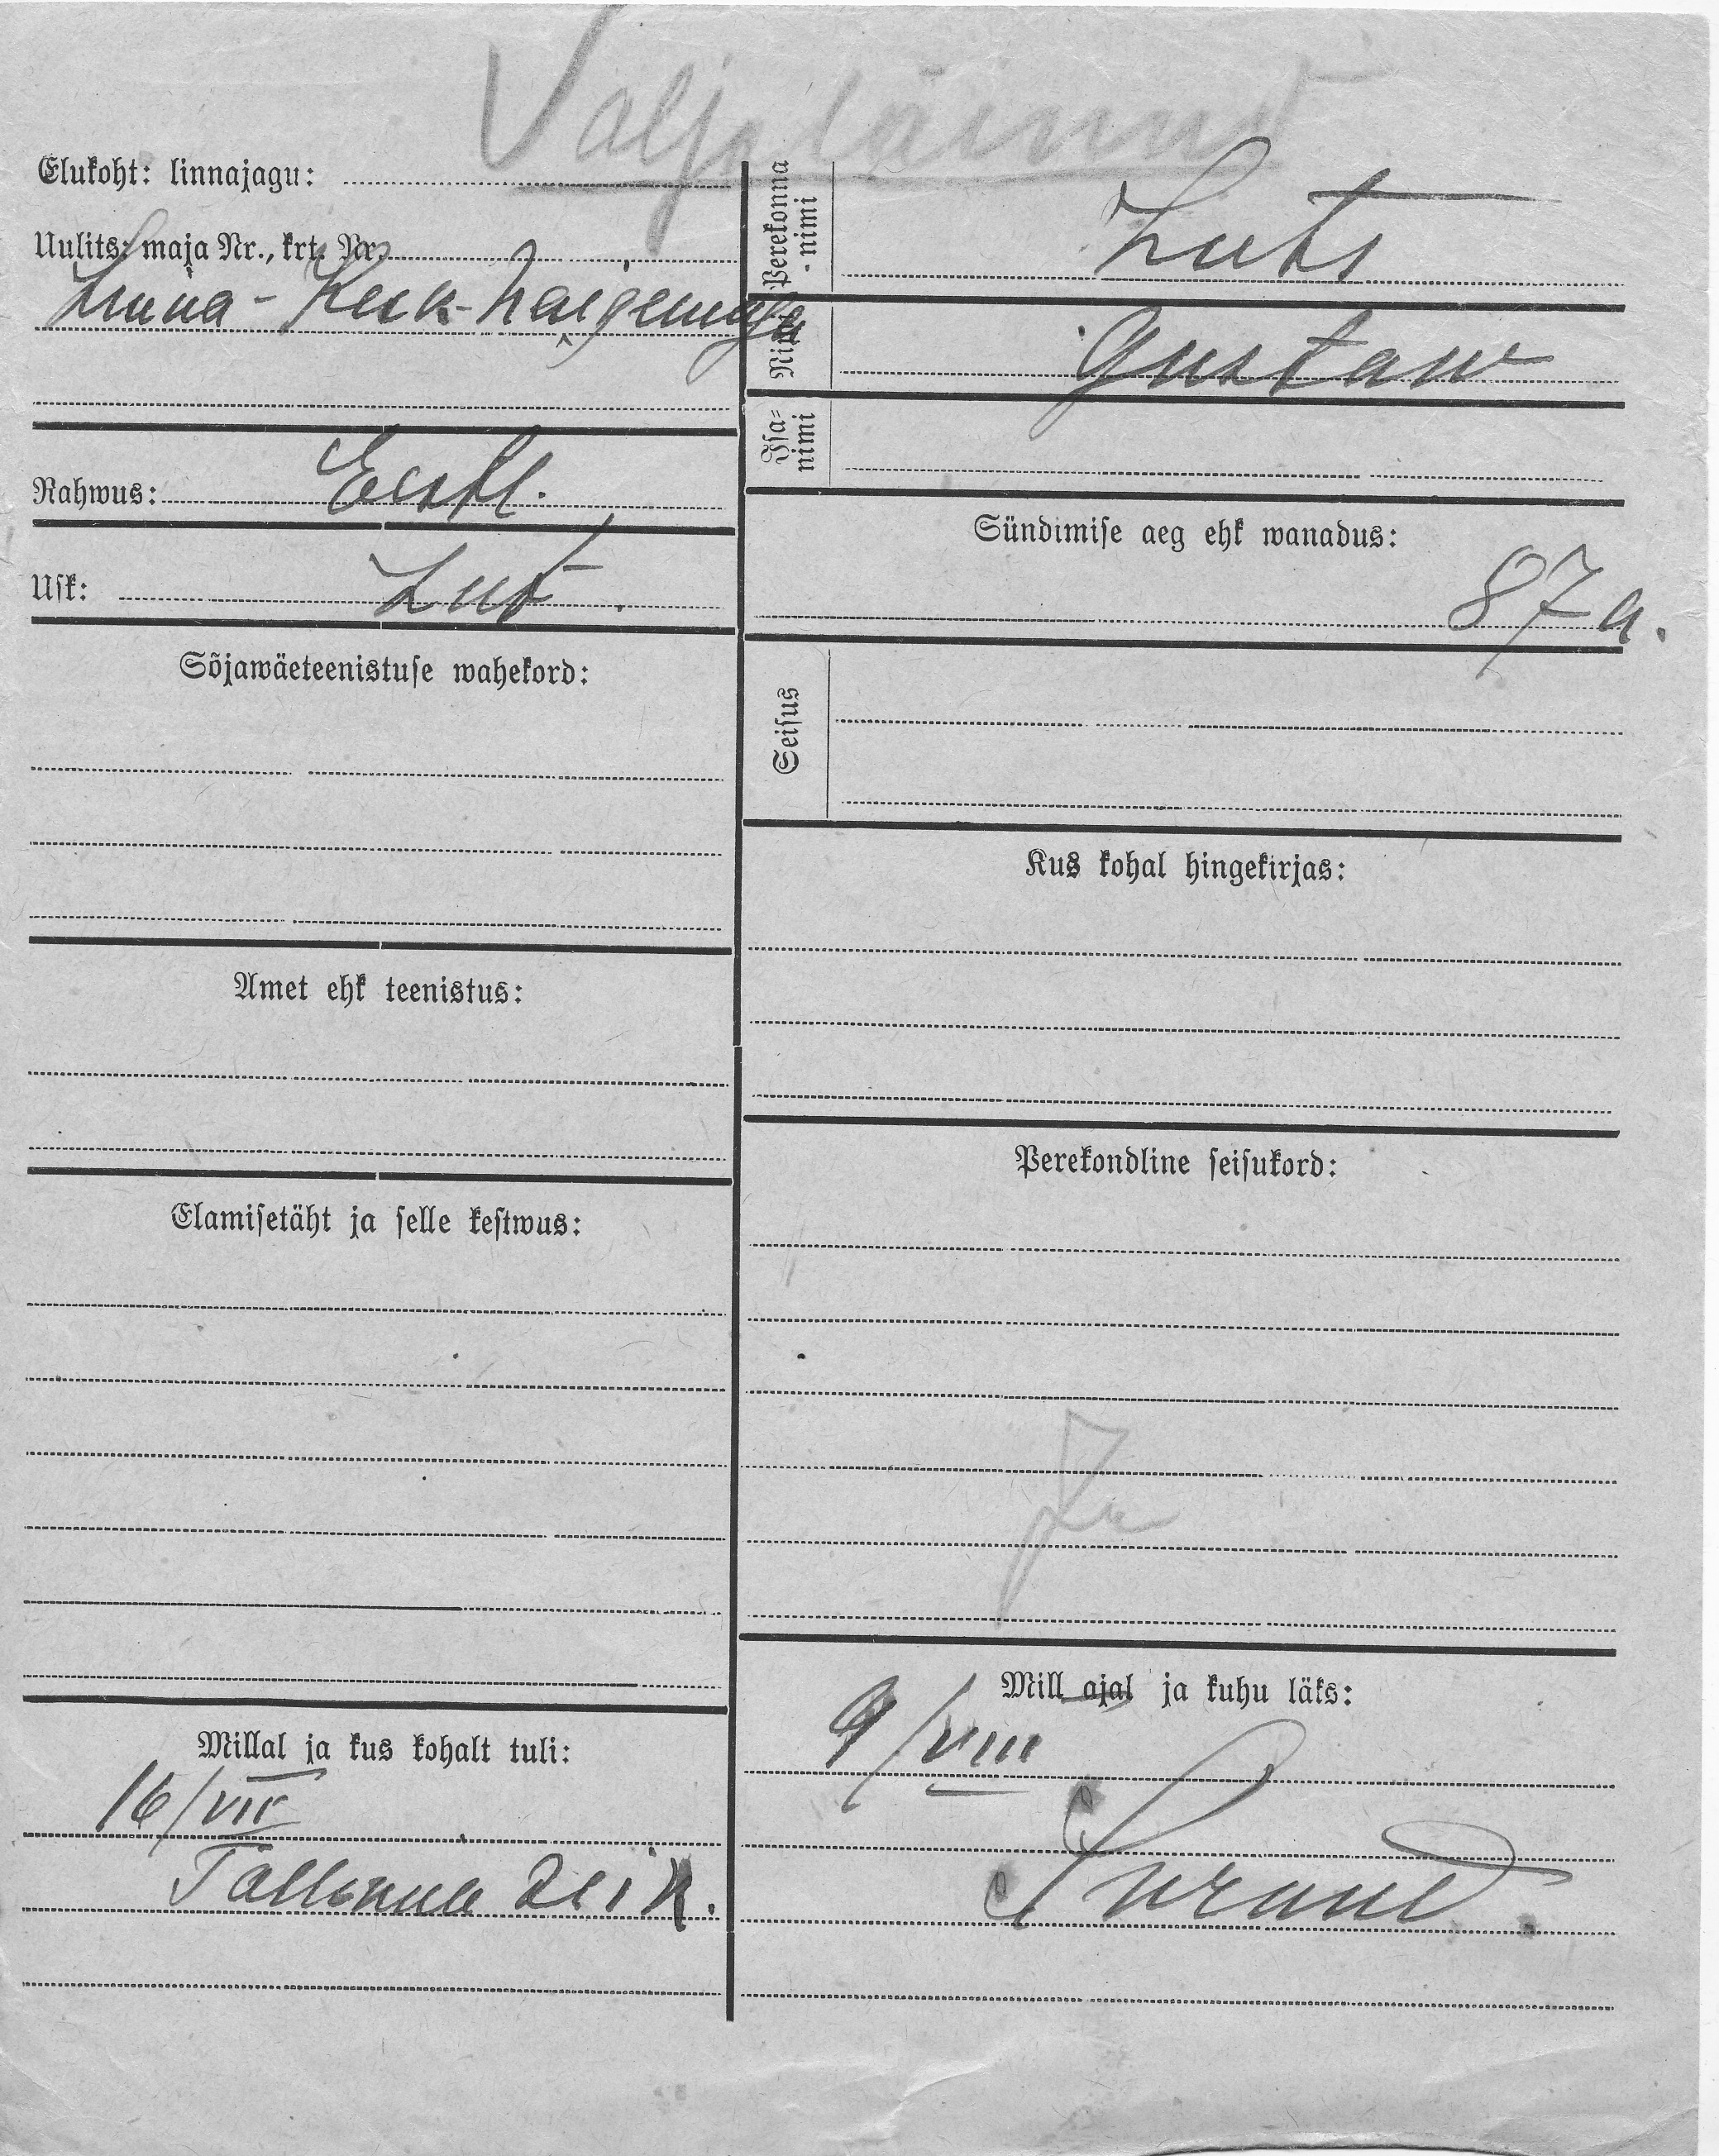 Väljaläinud
Elukoht: linnajagu:
Uulits, maja Nr., krt. Nr.
Linna-Kesk-haigemaja
Rahwus: Eestl.
Usk: Lut.
Sõjawäeteenistuse wahekord:
Amet ehk teenistus:
Elamisetäht ja selle kestwus:
Millal ja kus kohalt tuli:
16/VII
Tallinna
Perekonna
nimi
Luts
Nimi
Gustaw
Isa-
nimi
Sündimise aeg ehk wanadus:
87 a.
Seisus
Kus kohal hingekirjas:
Perekondline seisukord:
Mill ajal ja kuhu läks:
9/VIII
Surnud.